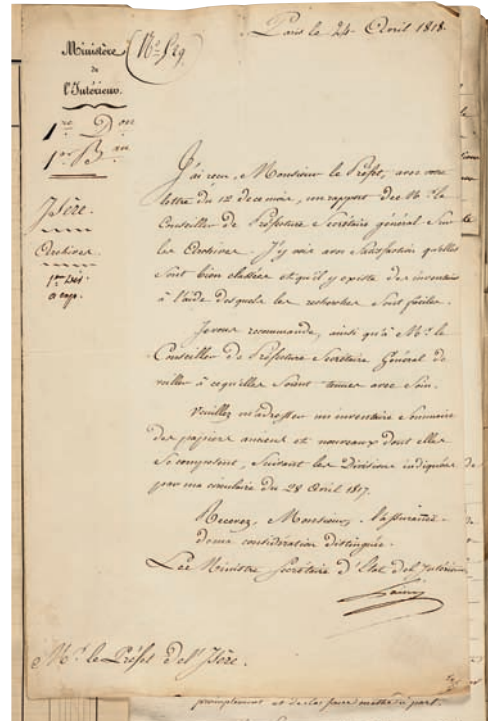 Paris le 24 Avril 1818.
Ministère
de
l'Intérieur.
1re Don
1er Bau
Isère.
Archives.
J'ai reçu, Monsieur le Préfet, avec votre
lettre du 12 de ce mois, un rapport de M. le
Conseiller de Préfecture Secrétaire général sur
les Archives. J'y vois avec satisfaction qu'elles
sont bien classées et qu'il y existe des inventaires
à l'aide desquels les recherches sont faciles.
Je vous recommande, ainsi qu'à Mr. le
Conseiller de Préfecture Secrétaire Général de
veiller à ce qu'elles soient tenues avec soin.
Veuillez m'adresser un inventaire sommaire
des papiers anciens et nouveaux dont elles
se composent, suivant les Divisions indiquées
par ma circulaire du 28 Avril 1817.
Recevez, Monsieur, l'assurance
de ma considération distinguée.
Le Ministre Secrétaire d'Etat de l'Intérieur
Lainé
Mr. le Préfet de l'Isère.
promptement et de les faire mettre à part.